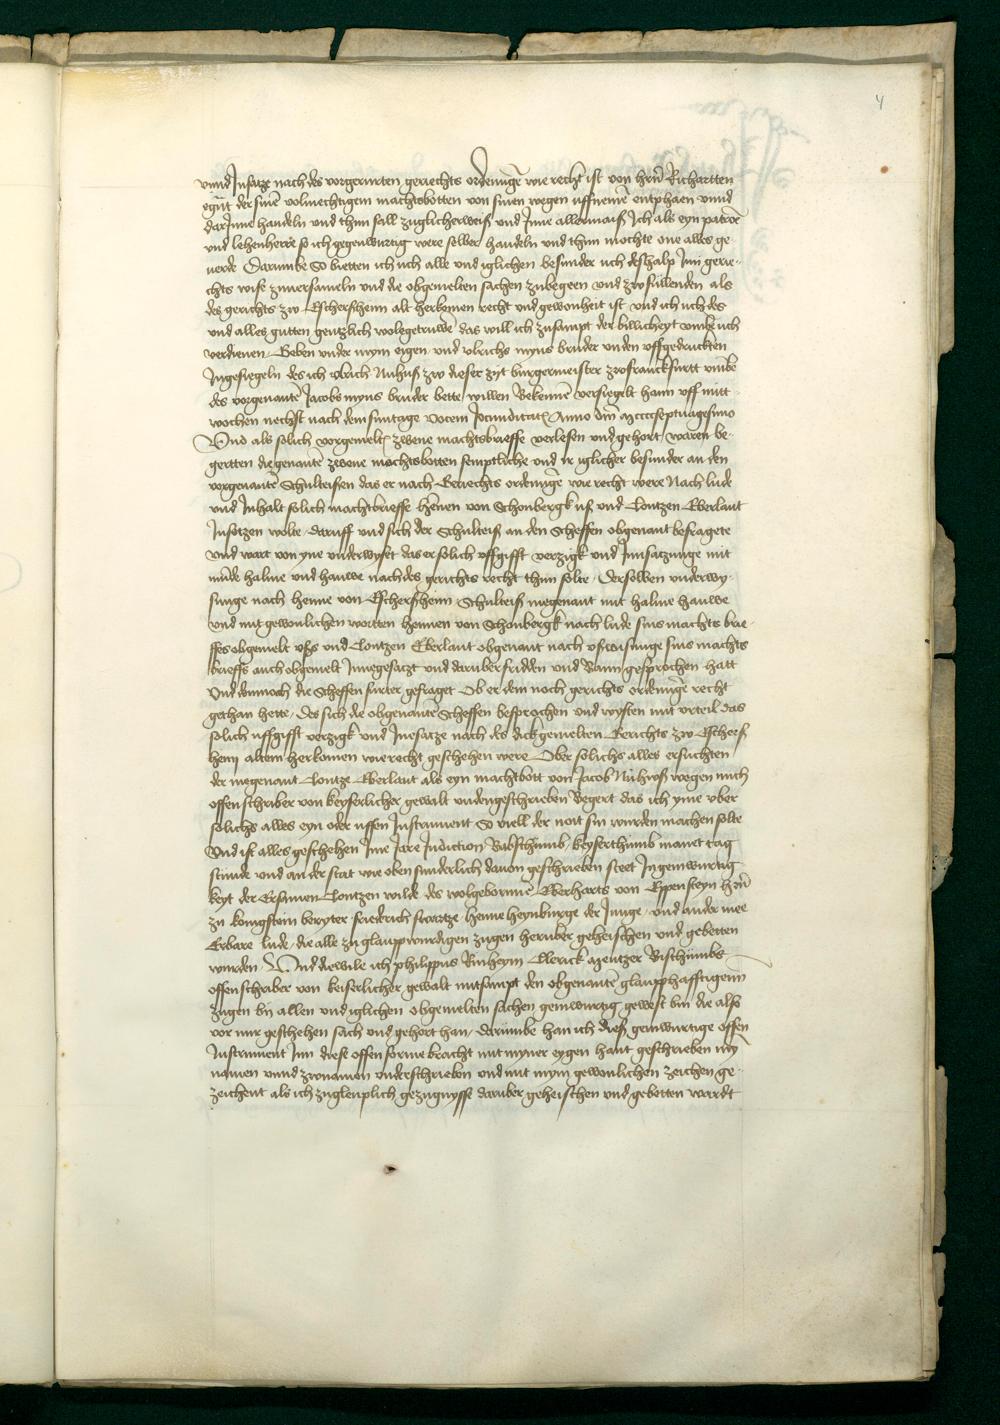 4
vnnd Insatze nach des vorgerurten gerichts ordenunge wie recht ist von hern Richartten
egnt der sine volmechtigem machtsbotten von sinen wegen uffnemē entphaen vnnd
darJnne handeln vnd thun sall zuglicherweiß vnd Jnne allermaiß Jch als eyn patron
vnd lehenherre so ich gegenwurtig were selber handeln vnd thun mochte one alles ge
uerde Darumbe So bietten ich uch alle vnd iglichen besunder uch deshalp Jnn gerie-
chts wise zuuersameln vnd die obgemelten sachen zubegeen vnd zwfullenden als
des gerichts zw Eschersheim alt herkomen recht vnd gewonheit ist vnd ich uch des
vnd alles gutten gentzlich wolegetruwe das will ich zusampt der billicheyt vmb uch
verdienen Geben vnder mym eigen vnd vlrichs myns bruder vnden vffgedruckten
Jngesiegeln des ich vlrich Nuhuß zw dieser zyt burgermeister zwfranckfurtt vmbe
des vorgenante Jacobs myns bruder bette willen Bekennē versiegelt hann vff mitt
wochen nechst nach dem suntage vocem Jocunditatis Anno dm Mccccseptuagesimo
Vnd als solich vorgemelt zwene machtsbrieffe verlesen vnd gehort waren be-
gertten die genante zwene machtsbotten semptliche vnd ir iglicher besunder an den
vorgenante Schulteissen das er nach Gerichts ordenunge wie recht were Nach lude
vnd Jnhalt solich machtbrieffe Hennen von Schonbergk uß vnd Contzen Eberlant
Jnsetzen wolte daruff vnd sich der Schulteiß an den Scheffen obgenant befragete
vnd wart von yne vnderwyset das er solich vffgifft verzigk vnd Jnnsatzunge mit
munde halme vnd hauwe nach des gerichts recht thun solte Derselben vnderwy-
sunge nach henne von Eschersheim Schulteiß megenant mit halme hauwe
vnd mit gewonlichen wortten hennen von Schonbergk nach lude sins machts brie-
ffes obgemelt vßs vnd Contzen Eberlant obgenant nach vßwisunge sins machts
brieffs auch obgemelt Jnnegesatzt vnd daruber fridden vnd Bann gesprochen hatt
vnd dannoch die Scheffen furter gefraget Ob er dem noch gerichts ordenunge recht
gethan hette Des sich die obgenante Scheffen besprochen vnd wysten mit vrteil das
solich uffgifft verzigk vnd Jnesatze nach des dickgemelten Gerichts zw Eschers
heim altem herkomen wie recht geschehen were Ober solichs alles ersuchten
der megenant Contze Eberlant als eyn machtbott von Jacob Nuhuß wegen mich
offenschriber von keyserlicher gewalt vndengeschrieben Begert das ich yme vber
solichs alles eyn oder uffen Jnstrument So viell der noit sin wurden machen solte
Vnd ist alles geschehen Jme Jare Jndiction Babsthumb keyserthumb manet tag
stunde vnd an der stat wie oben sunderlich dauon geschrieben steet Jn geinwurtig
keyt der Ersamen Contzen wilde des wolgebornne Eberharts von Eppensteyn hern
zu konigstein beryter friedrich swartze henne heynburge der Junge vnd ander mee
Erbare lude die alle zu glaupwurdigen zugen heruber geheischen vnd gebetten
wurden Vnd diewile ich philippus Binheym Clerick Mentzer Bischtumbs
offenschriber von keiserlicher gewalt mitsampt den obgenante glaupphafftigenn
zugen bij allen vnd iglichen obgemelten sachen geinwurtig gewest bin die also
vor mir geschehen sach vnd gehort han darumbe han ich dieß geinwurtige offen
Jnstrument Jnn diese offen forme bracht mit myner eygen hant geschrieben my
namen vnnd zwnamen vnderschrieben vnd mit mym gewonlichen zeichen ge
zeichent als ich zuglenplich gezugnysse daruber geheischen vnd gebetten wardt